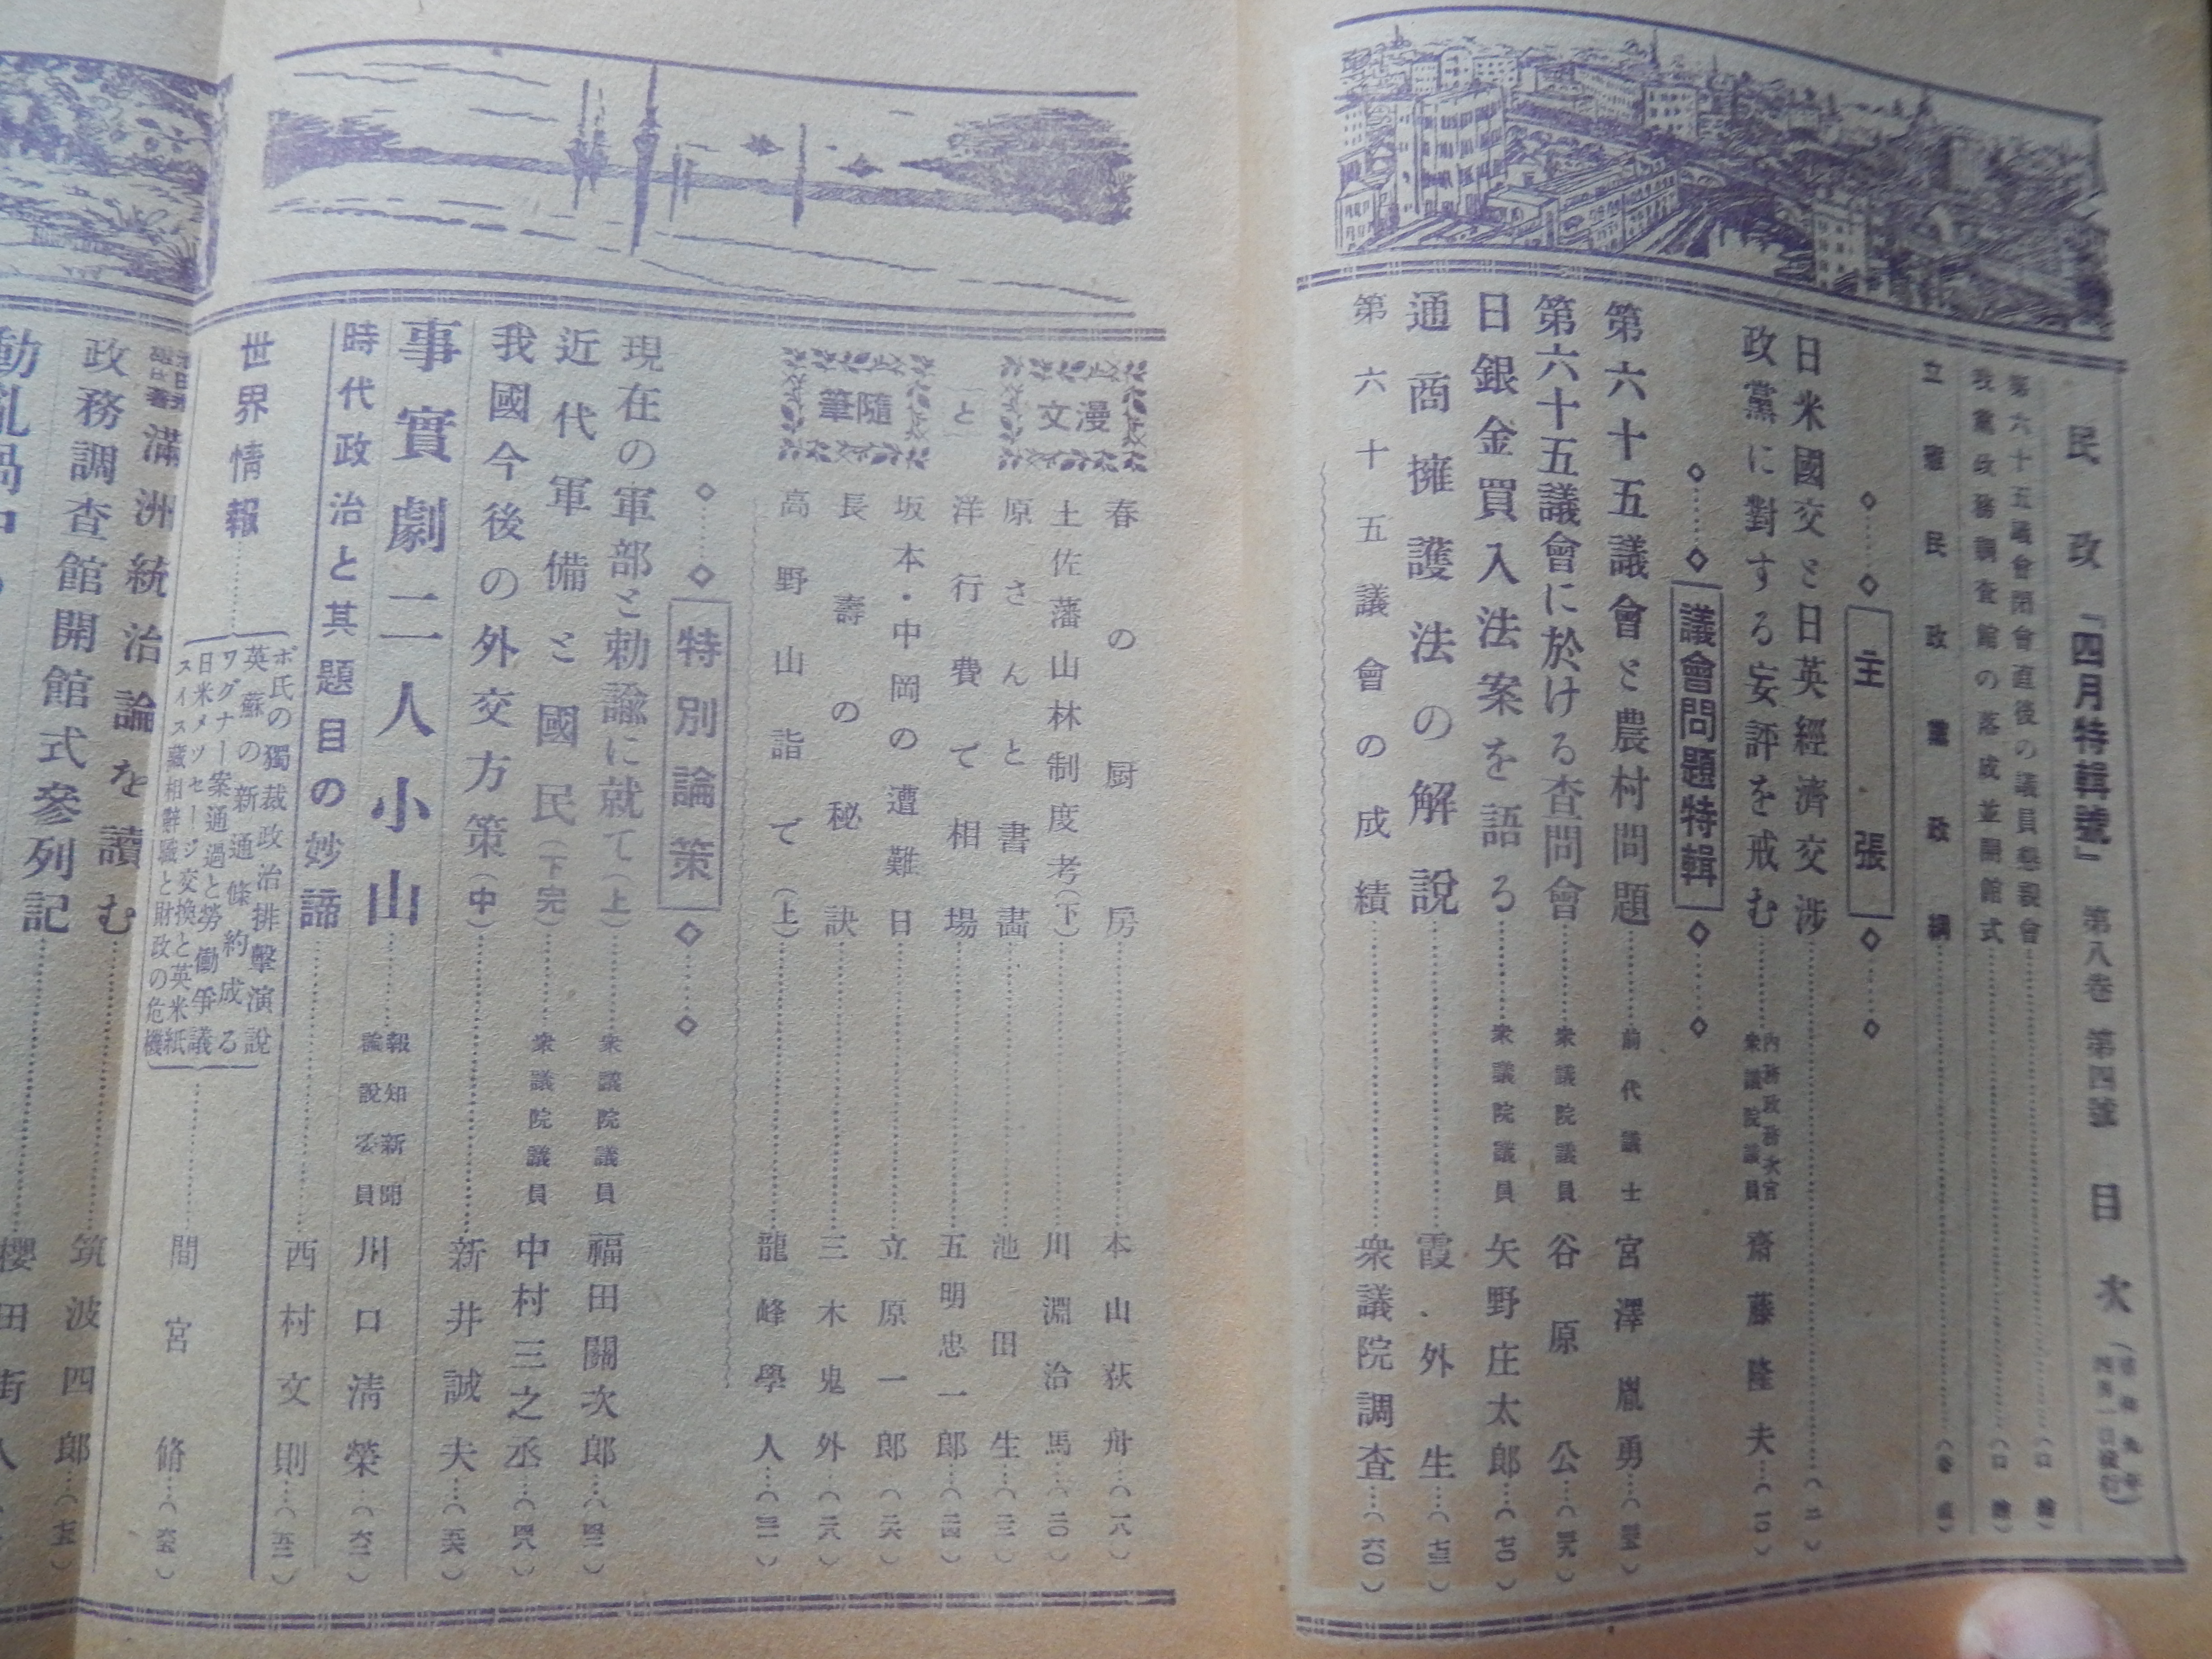 民政『四月特輯號』第八卷第四號目次(昭和九年四月一日發行)
第六十五議會閉會直後の議員懇親會(口繪)
我黨政務調査館の落成並開館式(口繪)
立憲民政黨政綱
◇主張◇
日米國交と日英經濟交渉(二)
政黨に對する妄評を戒む 內務政務次官 衆議院議員 齋藤隆夫(一〇)
◇議會問題特輯◇
第六十五議會と農村問題 前代議士 宮澤胤勇
第六十五議會に於ける査問會 衆議院議員 谷原公
日銀金買入法案を語る 衆議院議員 矢野庄太郎(七〇)
通商擁護法の解説 霞外生(七三)
第六十五議會の成績 衆議院調査(六〇)
漫文と隨筆
春の厨房 本山荻舟(一八)
土佐藩山林制度考(下) 川淵治馬(二〇)
原さんと書畵 池田生(二二)
洋行費で相場 五明忠一郎(二四)
坂本・中岡の遭難日 立原一郎(二六)
長壽の秘訣 三木鬼外(二八)
高野山詣で(上) 龍峰學人(三一)
◇特別論策◇
現在の軍部と勅諭に就て(上) 衆議院議員 福田關次郎(四三)
近代軍備と國民(下完) 衆議院議員 中村三之丞(四八)
我國今後の外交方策(中) 新井誠夫(五六)
事實劇二人小山 報知新聞論説委員 川口清榮(六二)
時代政治と其題目の妙諦 西村文則(五二)
世界情報 間宮脩
ボ氏の獨裁政治排擊演說
英蘇の新通條約成る
ワグナー案通過と勞働爭議
日米メッセージ交換と英米紙
スイス藏相辭職と財政の危機
滿洲統治論を讀む 筑波四郎(七五)
政務調査館開館式參列記 櫻田街人
動亂渦中の